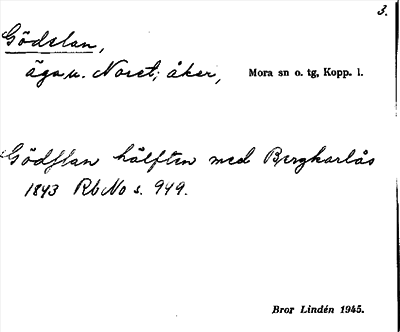 3.
Gödslan,
äga u. Noret; åker, Mora sn o. tg, Kopp. l.
Gödslan hälften med Bergkarlås
1843 RbNo s. 949.
Bror Lindén 1945.